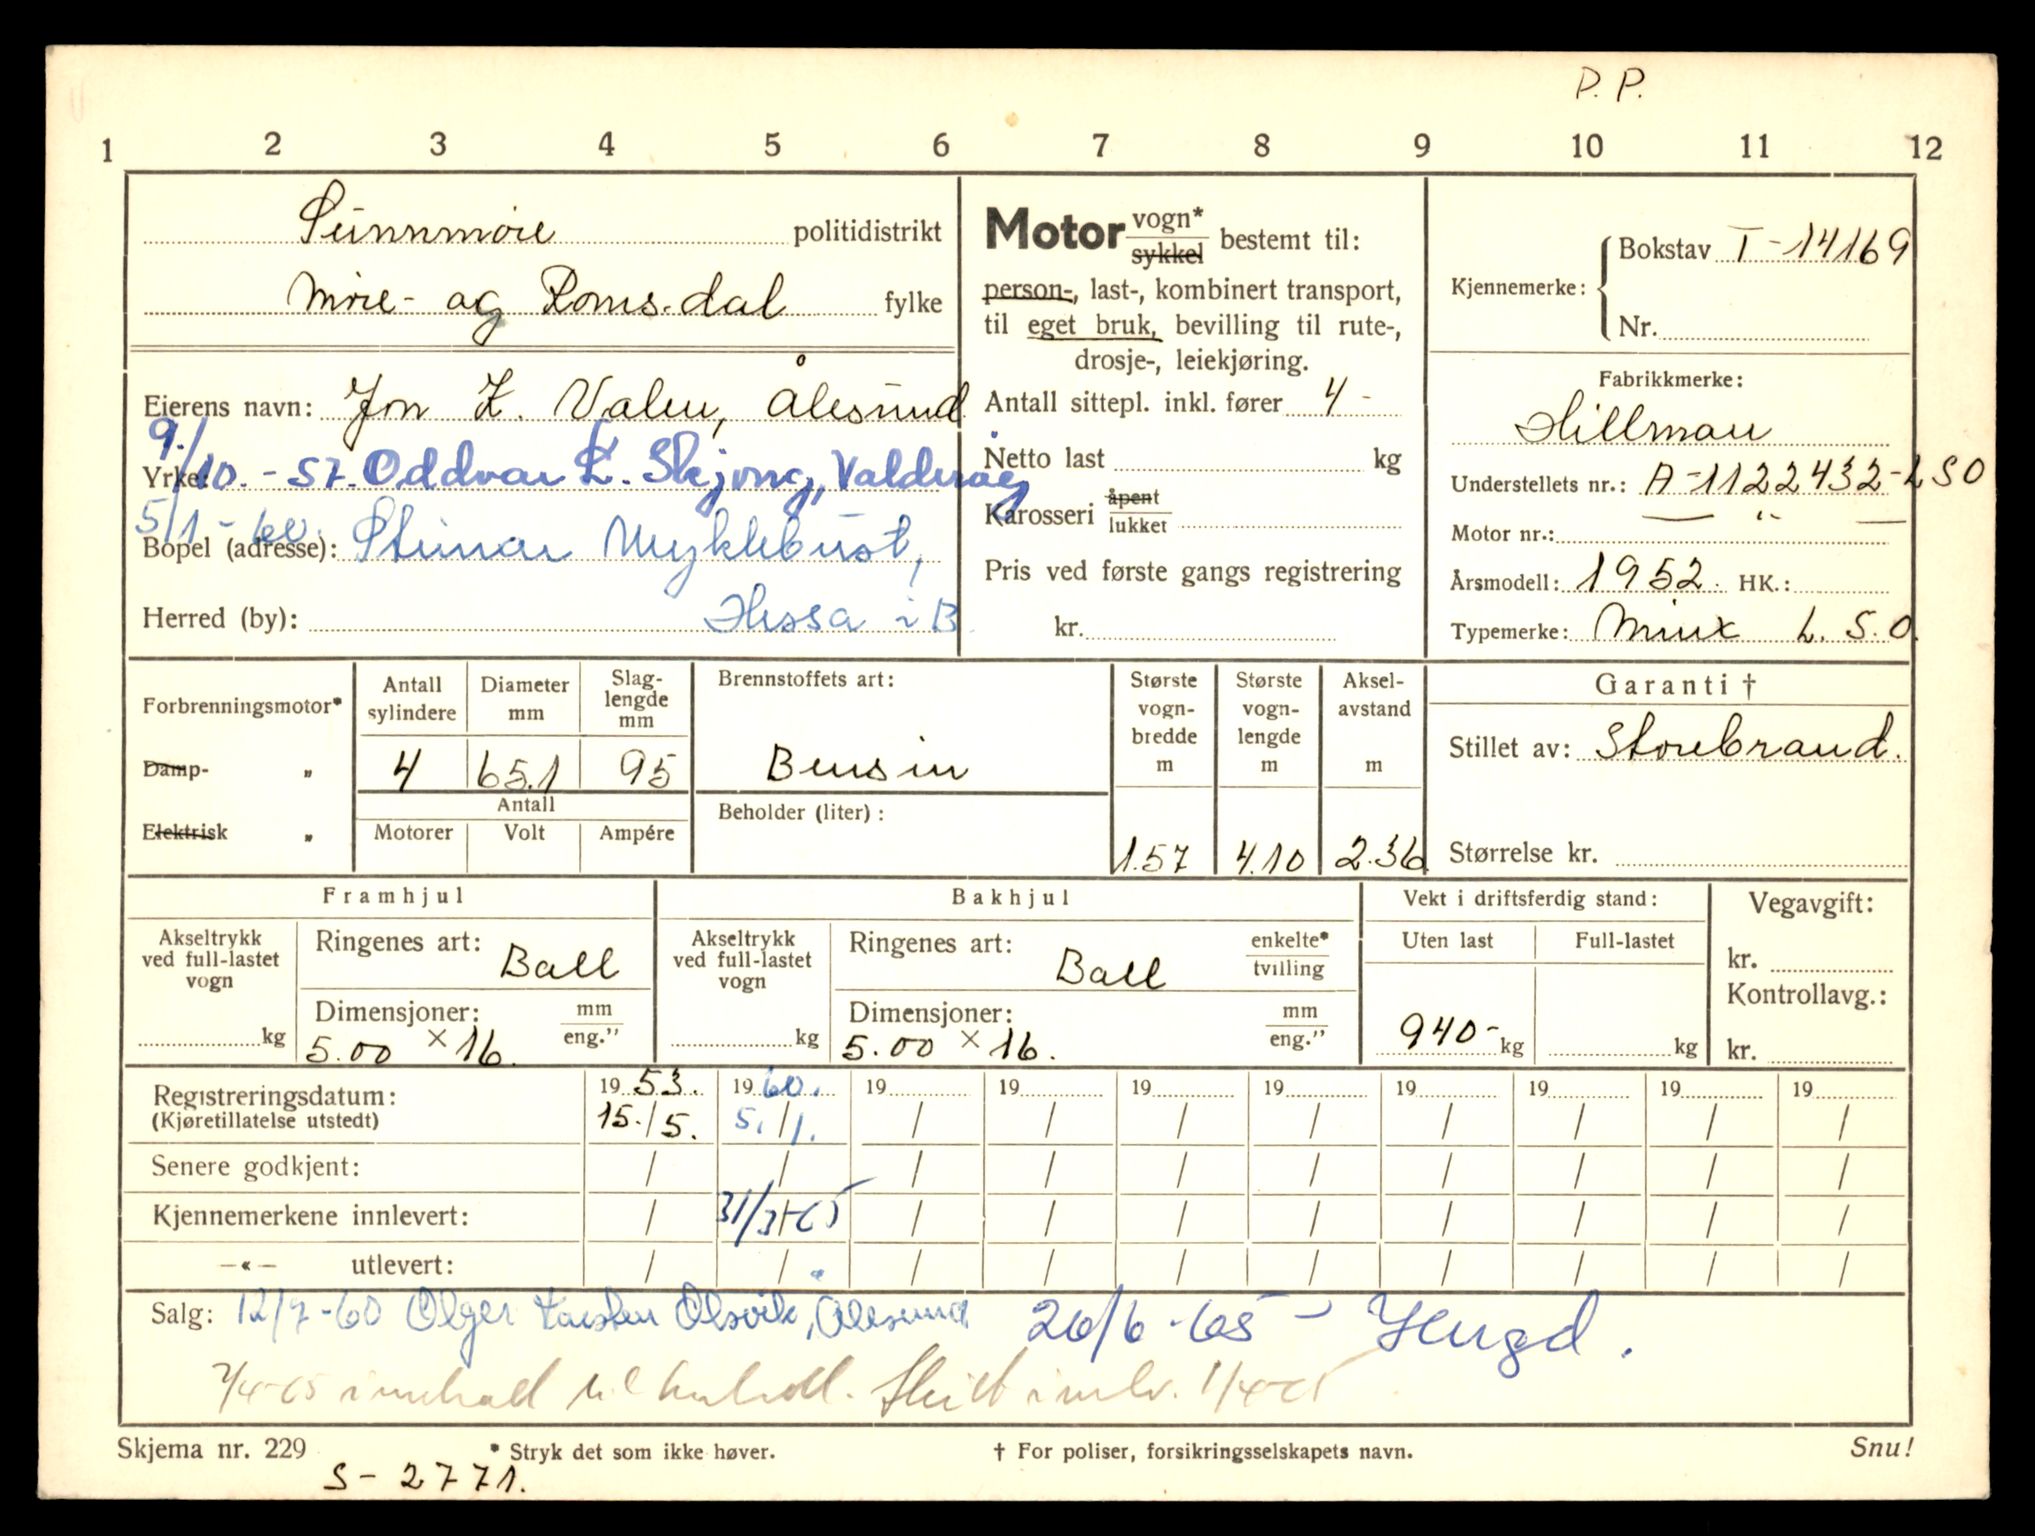 P. P.
1 2 3 4 5 6 7 8 9 10 11 12
Sunnmøre politidistrikt
Møre- og Romsdal fylke
Eierens navn: Jon Z. Valen, Ålesund
9./10.-57. Oddvar L. Skjong, Valderøy
Yrke:
5/1-60. Steinar Myklebust,
Bopel (adresse):
Herred (by): Hessa i B
Motor vogn* / sykkel bestemt til:
person-, last-, kombinert transport,
til eget bruk, bevilling til rute-,
drosje-, leiekjøring.
Antall sittepl. inkl. fører 4 -
Netto last kg
Karosseri åpent / lukket
Pris ved første gangs registrering
kr.
Kjennemerke: Bokstav T-14169
Nr.
Fabrikkmerke:
Hillman
Understellets nr.: A-1122432-LSO
Motor nr.: — " —
Årsmodell: 1952. HK.:
Typemerke: Minx L.S.O.
Forbrenningsmotor*
Damp- "
Elektrisk "
Antall sylindere Diameter mm Slag-lengde mm
4 65.1 95
Antall
Motorer Volt Ampére
Brennstoffets art:
Bensin
Beholder (liter):
Største vogn-bredde m Største vogn-lengde m Aksel-avstand m
1.57 4.10 2.36
Garanti †
Stillet av: Storebrand.
Størrelse kr.
Framhjul
Akseltrykk ved full-lastet vogn
kg
Ringenes art: Ball
Dimensjoner: mm / eng."
5.00 × 16.
Bakhjul
Akseltrykk ved full-lastet vogn
kg
Ringenes art: Ball enkelte* / tvilling
Dimensjoner: mm / eng."
5.00 × 16.
Vekt i driftsferdig stand:
Uten last Full-lastet
940- kg kg
Vegavgift:
kr.
Kontrollavg.:
kr.
Registreringsdatum: 1953. 1960. 19 19 19 19 19 19 19 19
(Kjøretillatelse utstedt) 15./5. 5./1. / / / / / / / /
Senere godkjent: / / / / / / / / / /
Kjennemerkene innlevert: / 31/3-65 / / / / / / / /
—«— utlevert: / / / / / / / / / /
Salg: 12/7-60 Olger Karsten Olsvik, Ålesund 26/6-65 - Hugd.
1/4-65 Skilt innlv. 1/4-65
Skjema nr. 229 * Stryk det som ikke høver. † For poliser, forsikringsselskapets navn. Snu!
S-2771.